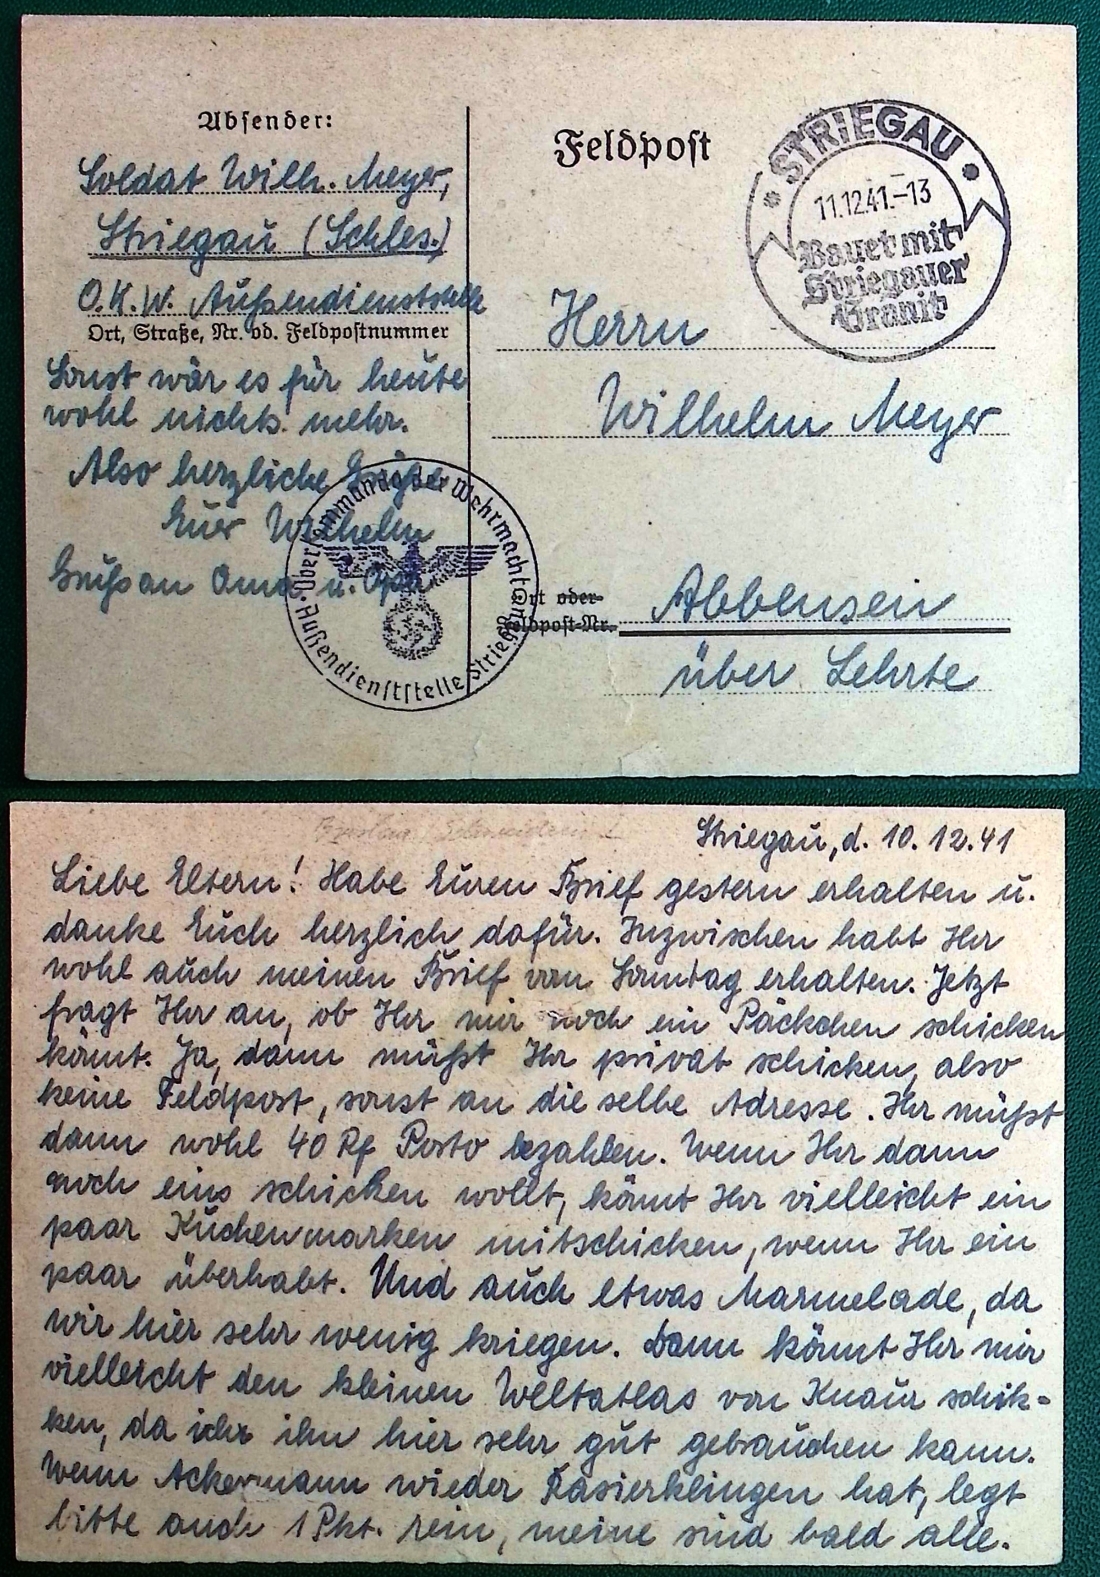 Absender:
Soldat Wilh. Meyer,
Striegau (Schles.)
O.K.W. Außendienststelle
Ort, Straße, Nr. od. Feldpostnummer
Sonst wär es für heute
wohl nichts mehr.
Also herzliche Grüße
Euer Wilhelm
Gruß an Oma u. Opa
Oberkommando der Wehrmacht
Außendienststelle Striegau
Feldpost
STRIEGAU
11.12.41.-13
Bauet mit
Striegauer
Granit
Herrn
Wilhelm Meyer
Ort oder
Feldpost-Nr.
Abbensen
über Lehrte
Striegau, d. 10.12.41
Liebe Eltern! Habe Euren Brief gestern erhalten u.
danke Euch herzlich dafür. Inzwischen habt Ihr
wohl auch meinen Brief vom Sonntag erhalten. Jetzt
fragt Ihr an, ob Ihr mir noch ein Päckchen schicken
könnt. Ja, dann müßt Ihr privat schicken, also
keine Feldpost, sonst an die selbe Adresse. Ihr müßt
dann wohl 40 Rf Porto bezahlen. Wenn Ihr dann
noch eins schicken wollt, könnt Ihr vielleicht ein
paar Kuchenmarken mitschicken, wenn Ihr ein
paar überhabt. Und auch etwas Marmelade, da
wir hier sehr wenig kriegen. Dann könnt Ihr mir
vielleicht den kleinen Weltatlas von Knaur schik-
ken, da ich ihn hier sehr gut gebrauchen kann.
Wenn Ackermann wieder Rasierklingen hat, legt
bitte auch 1 Pkt. rein, meine sind bald alle.